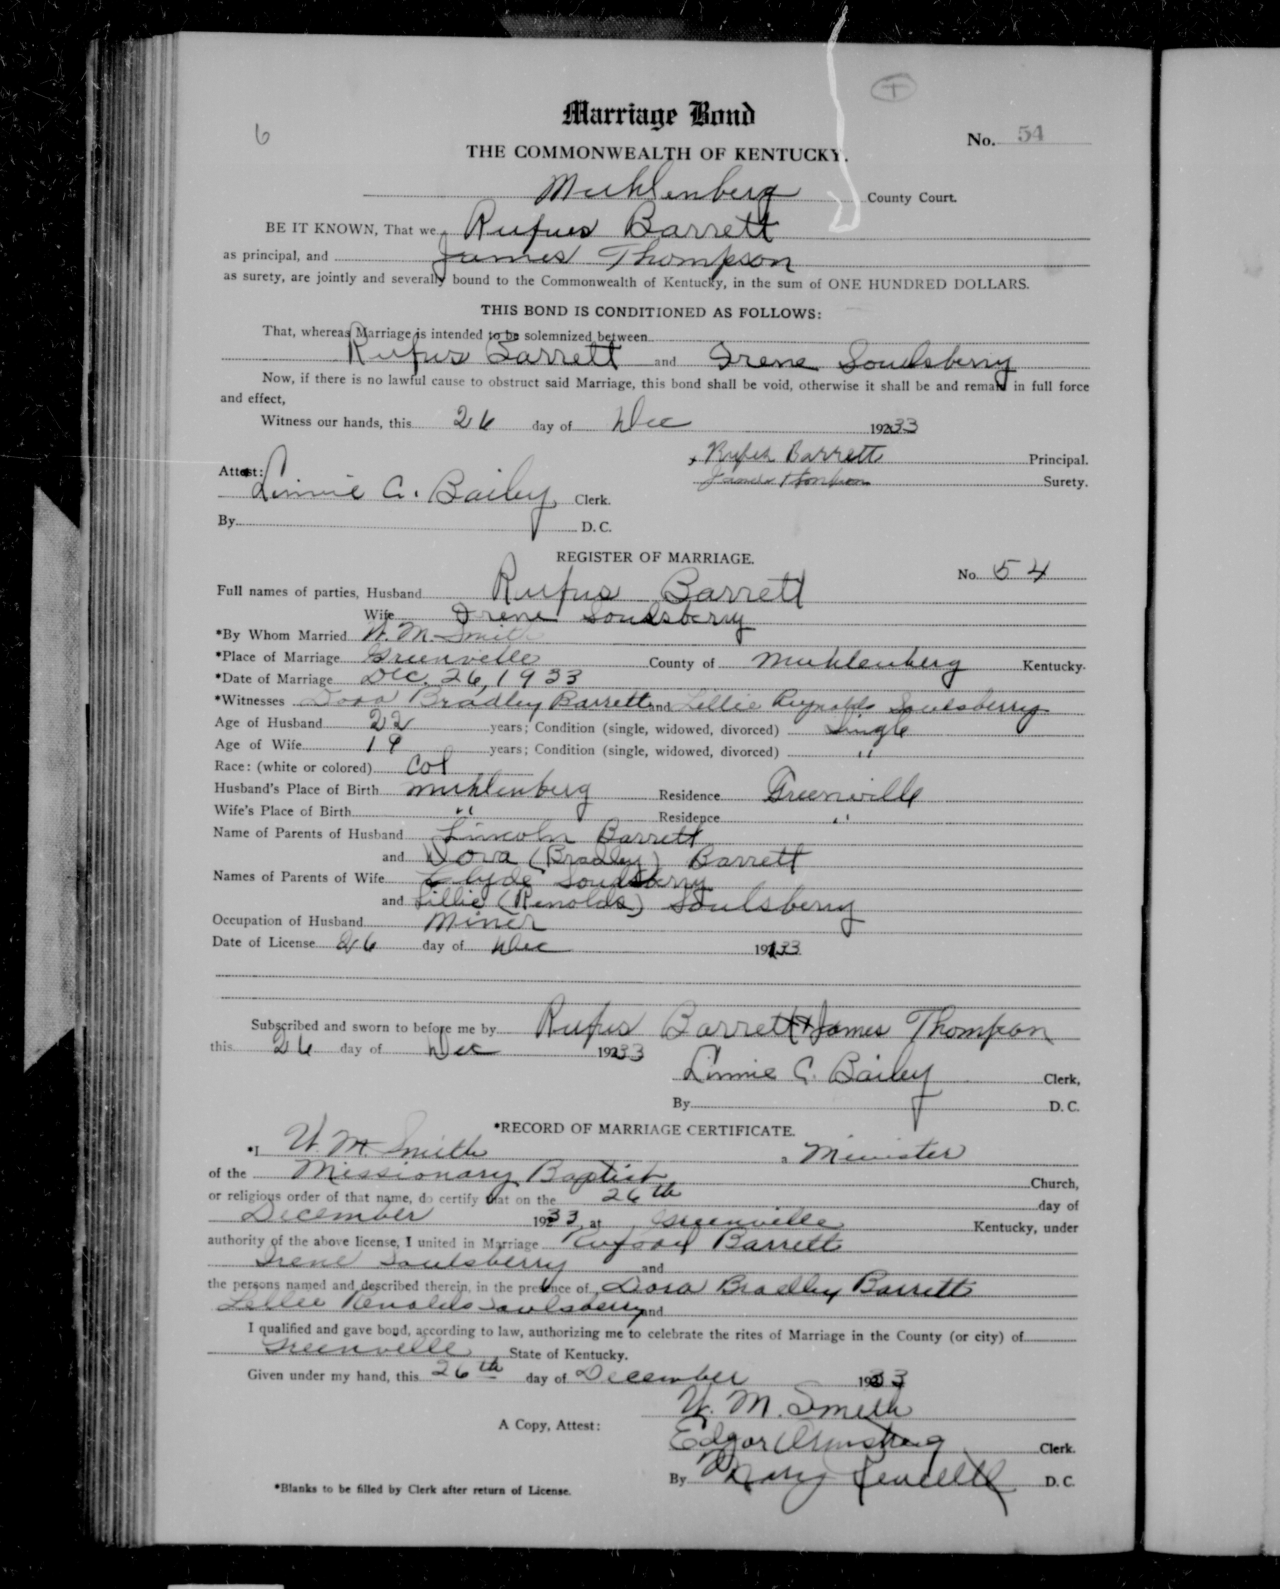 T
Marriage Bond
6
No. 54
THE COMMONWEALTH OF KENTUCKY.
Muhlenberg County Court.
BE IT KNOWN, That we Rufus Barrett
as principal, and James Thompson
as surety, are jointly and severally bound to the Commonwealth of Kentucky, in the sum of ONE HUNDRED DOLLARS.
THIS BOND IS CONDITIONED AS FOLLOWS:
That, whereas Marriage is intended to be solemnized between
Rufus Barrett and Irene Soulsberry
Now, if there is no lawful cause to obstruct said Marriage, this bond shall be void, otherwise it shall be and remain in full force
and effect,
Witness our hands, this 26 day of Dec 1933
Rufus Barrett Principal.
Attest:
James Thompson Surety.
Linnie C. Bailey Clerk.
By D. C.
REGISTER OF MARRIAGE.
No. 54
Full names of parties, Husband Rufus Barrett
Wife Irene Soulsberry
*By Whom Married W. M. Smith
*Place of Marriage Greenville County of Muhlenberg Kentucky.
*Date of Marriage Dec. 26, 1933
*Witnesses Dora Bradley Barrett and Lillie Reynolds Soulsberry
Age of Husband 22 years; Condition (single, widowed, divorced) Single
Age of Wife 19 years; Condition (single, widowed, divorced) "
Race: (white or colored) Col
Husband's Place of Birth Muhlenberg Residence Greenville
Wife's Place of Birth " Residence "
Name of Parents of Husband Lincoln Barrett
and Dora (Bradley) Barrett
Names of Parents of Wife Clyde Soulsberry
and Lillie (Renolds) Soulsberry
Occupation of Husband Miner
Date of License 26 day of Dec 1933
Subscribed and sworn to before me by Rufus Barrett & James Thompson
this 26 day of Dec 1933
Linnie C. Bailey Clerk,
By D. C.
*RECORD OF MARRIAGE CERTIFICATE.
*I W. M. Smith, Minister
of the Missionary Baptist Church,
or religious order of that name, do certify that on the 26th day of
December 1933, at Greenville Kentucky, under
authority of the above license, I united in Marriage Barrett
Irene Soulsberry and
the persons named and described therein, in the presence of Dora Bradley Barrett
Lillie Renolds Soulsberry and
I qualified and gave bond, according to law, authorizing me to celebrate the rites of Marriage in the County (or city) of
Greenville State of Kentucky.
Given under my hand, this 26th day of December 1933
W. M. Smith
A Copy, Attest:
Edgar Armstrong Clerk.
By Mary D. C.
*Blanks to be filled by Clerk after return of License.